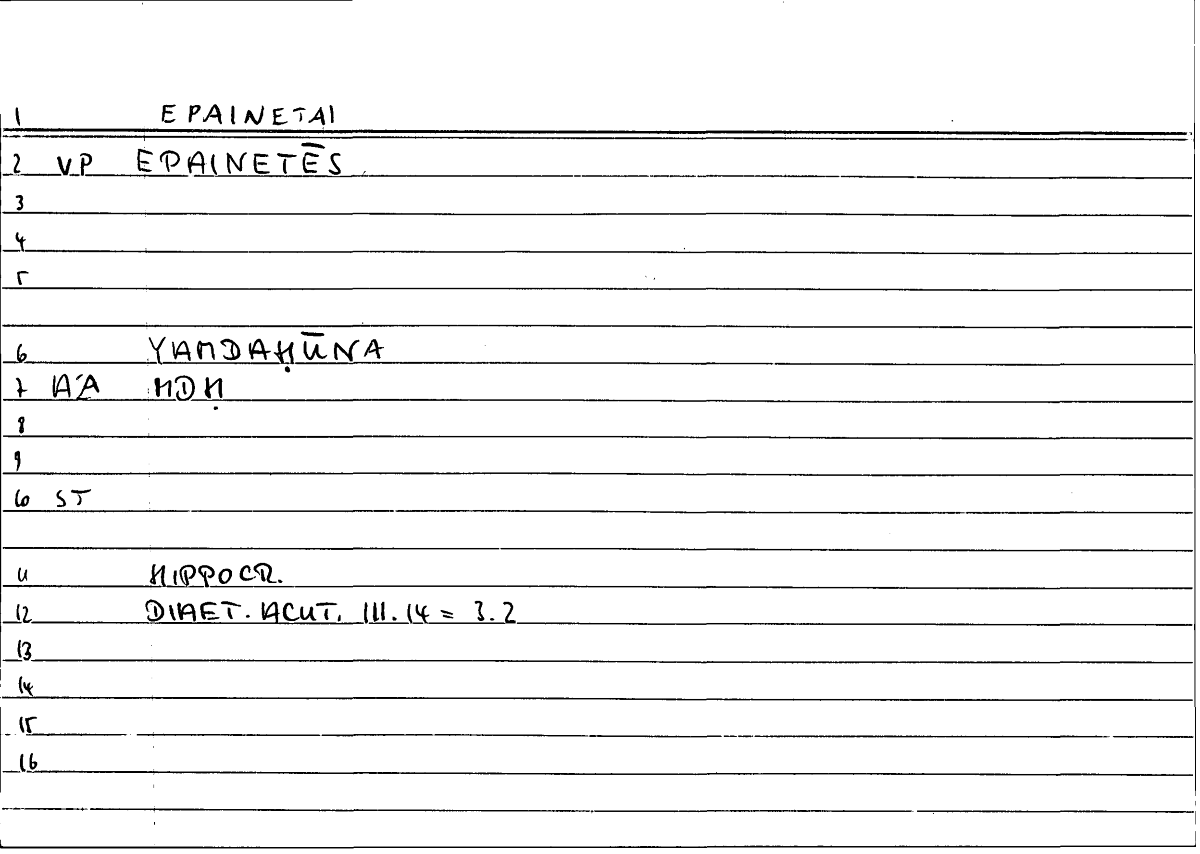 1 EPAINETAI
2 VP EPAINETĒS
3
4
5
6 YAMDAḤŪNA
7 A'A MDḤ
8
9
10 ST
11 HIPPOCR.
12 DIAET. ACUT. III.14 = 3.2
13
14
15
16